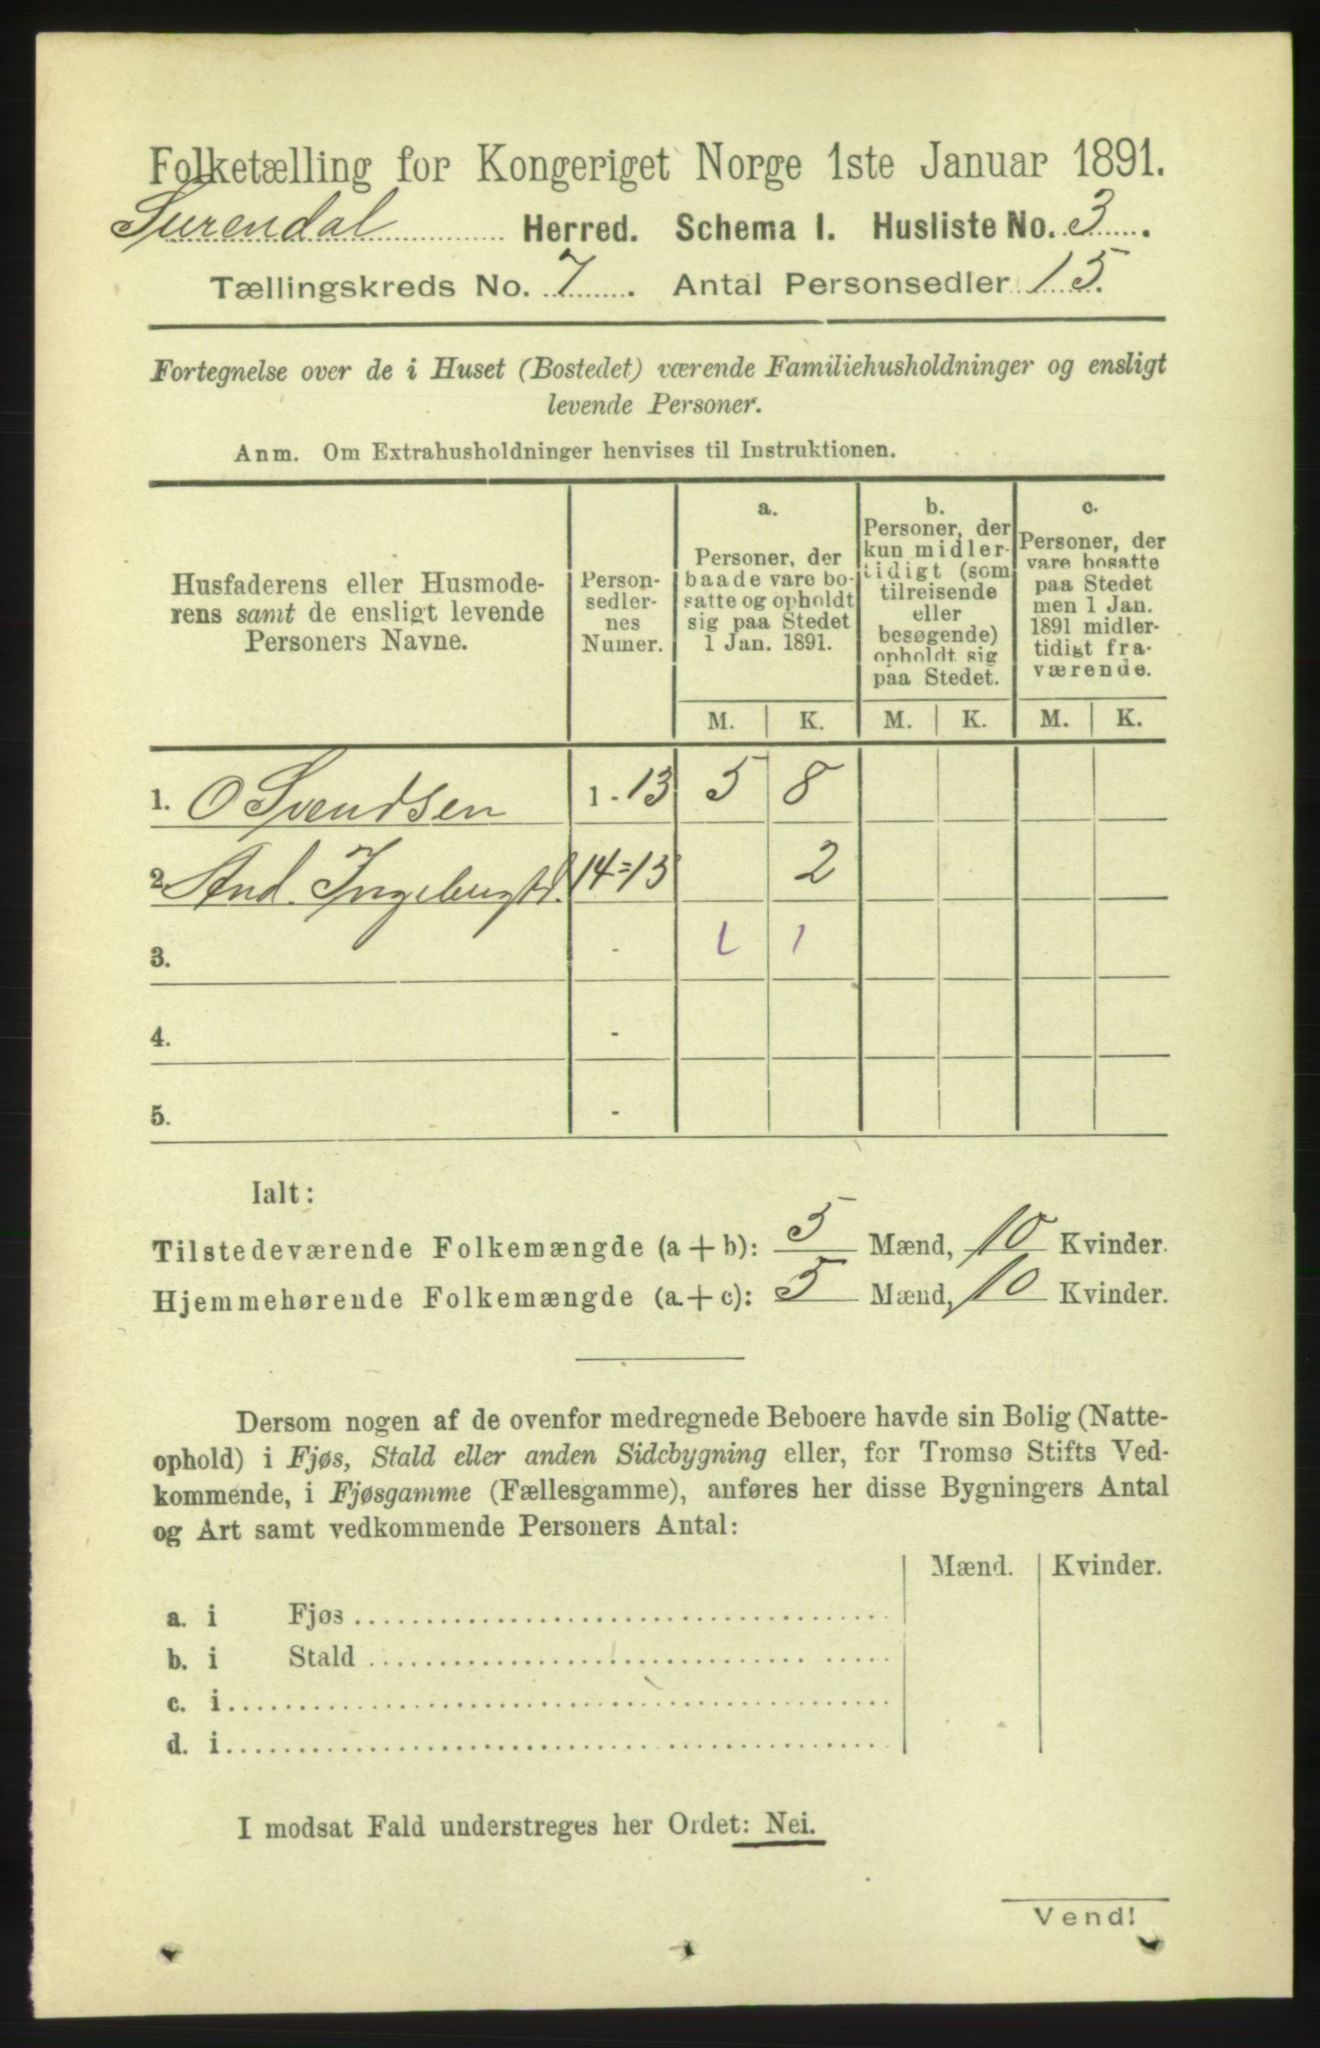 Folketælling for Kongeriget Norge 1ste Januar 1891.
Surendal Herred. Schema I. Husliste No. 3.
Tællingskreds No. 7. Antal Personsedler 15.
Fortegnelse over de i Huset (Bostedet) værende Familiehusholdninger og ensligt
levende Personer.
Anm. Om Extrahusholdninger henvises til Instruktionen.
Husfaderens eller Husmode-
rens samt de ensligt levende
Personers Navne.
Person-
sedler-
nes
Numer.
a.
Personer, der
baade vare bo-
satte og opholdt
sig paa Stedet
1 Jan. 1891.
b.
Personer, der
kun midler-
tidigt (som
tilreisende
eller
besøgende)
opholdt sig
paa Stedet.
c.
Personer, der
vare bosatte
paa Stedet
men 1 Jan.
1891 midler-
tidigt fra-
værende.
M. K. M. K. M. K.
1. O Svendsen 1 - 13 5 8
2. And. Ingebrigtd. 14=15 2
3. - 1 1
4. -
5. -
Ialt:
Tilstedeværende Folkemængde (a + b): 5 Mænd, 10 Kvinder.
Hjemmehørende Folkemængde (a + c): 5 Mænd, 10 Kvinder.
Dersom nogen af de ovenfor medregnede Beboere havde sin Bolig (Natte-
ophold) i Fjøs, Stald eller anden Sidebygning eller, for Tromsø Stifts Ved-
kommende, i Fjøsgamme (Fællesgamme), anføres her disse Bygningers Antal
og Art samt vedkommende Personers Antal:
Mænd. Kvinder.
a. i Fjøs
b. i Stald
c. i
d. i
I modsat Fald understreges her Ordet: Nei.
Vend!